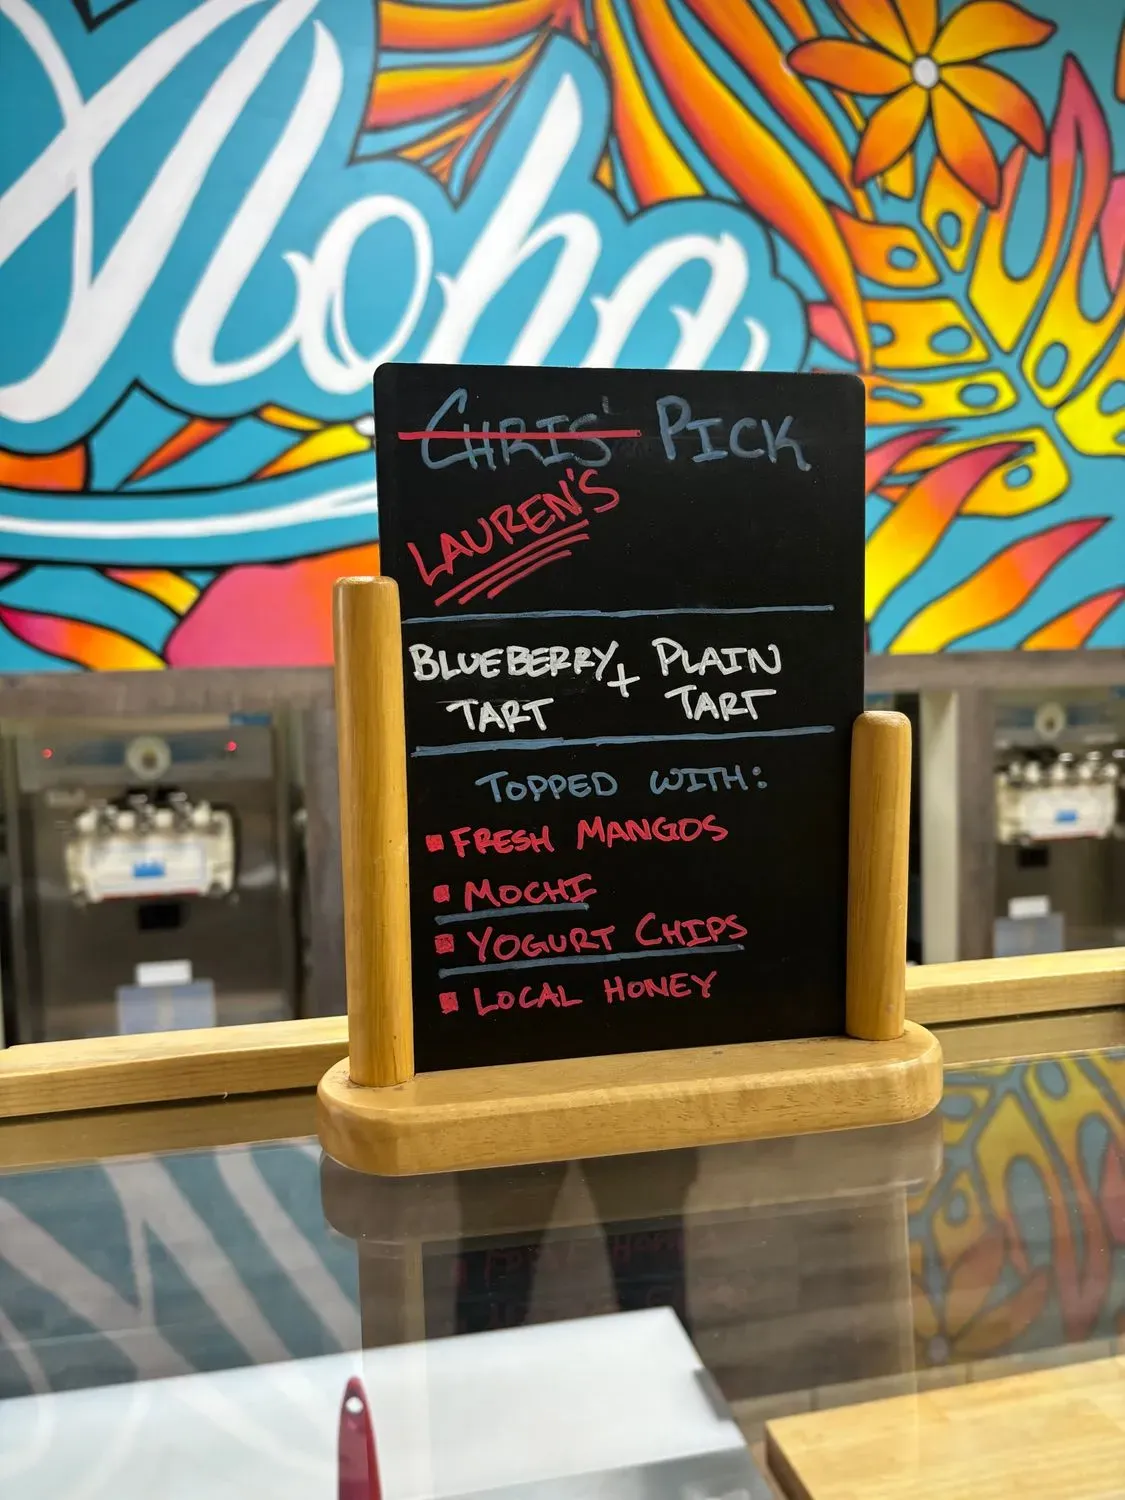 Aloha
CHRIS' PICK
LAUREN'S
BLUEBERRY + PLAIN
TART TART
TOPPED WITH:
▪ FRESH MANGOS
▪ MOCHI
▪ YOGURT CHIPS
▪ LOCAL HONEY